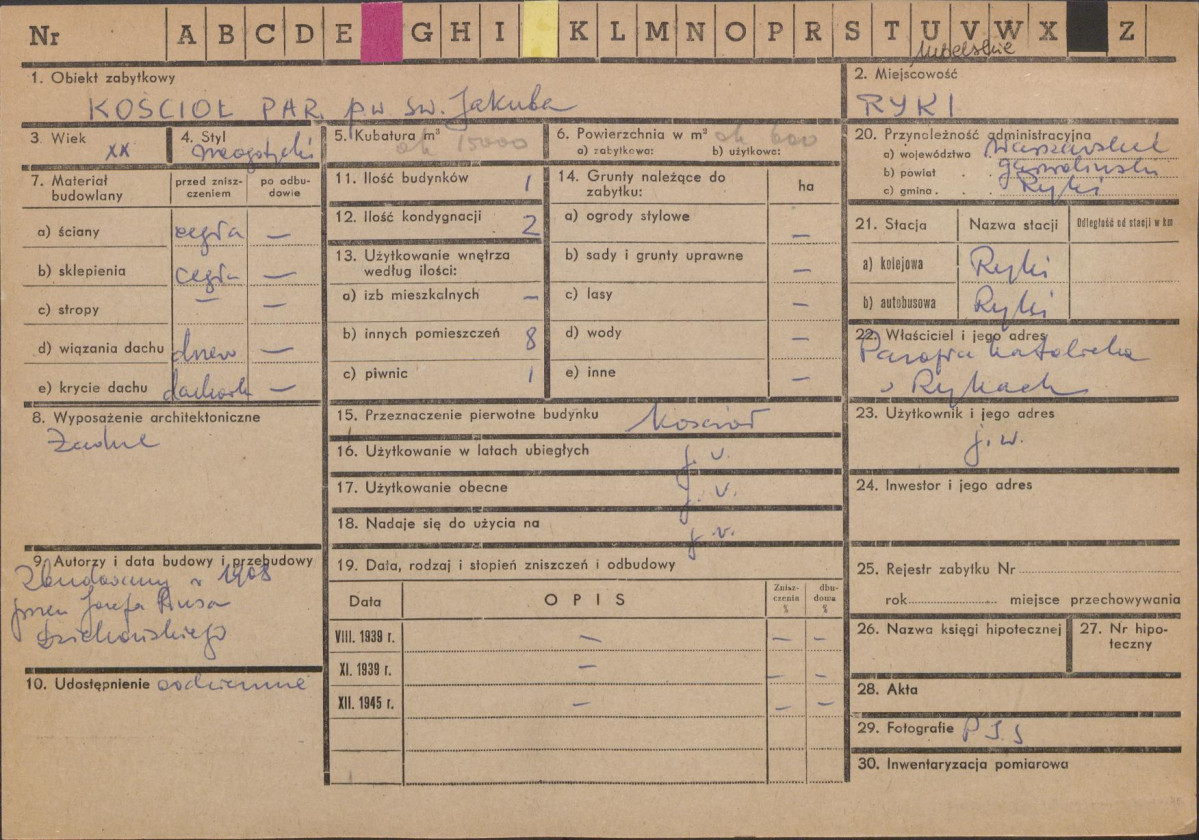 Nr A B C D E G H I K L M N O P R S T U V W X Z
lubelskie
1. Obiekt zabytkowy
KOŚCIOŁ PAR. p.w. św. Jakuba
2. Miejscowość
RYKI
3. Wiek
XX
4. Styl
neogotycki
5. Kubatura m³
ok 15000
6. Powierzchnia w m² ok 600
a) zabytkowa: b) użytkowa:
7. Materiał budowlany
przed zniszczeniem
po odbudowie
a) ściany cegła —
b) sklepienia cegła —
c) stropy — —
d) wiązania dachu drew —
e) krycie dachu —
8. Wyposażenie architektoniczne
Żadne
9. Autorzy i data budowy i przebudowy
Zbudowany w 1908
przez Józefa Piusa
Dziekońskiego
10. Udostępnienie codziennie
11. Ilość budynków 1
12. Ilość kondygnacji 2
13. Użytkowanie wnętrza
według ilości:
a) izb mieszkalnych —
b) innych pomieszczeń 8
c) piwnic 1
14. Grunty należące do
zabytku: ha
a) ogrody stylowe —
b) sady i grunty uprawne —
c) lasy —
d) wody —
e) inne —
15. Przeznaczenie pierwotne budynku kościół
16. Użytkowanie w latach ubiegłych j. w.
17. Użytkowanie obecne j. w.
18. Nadaje się do użycia na j. w.
19. Data, rodzaj i stopień zniszczeń i odbudowy
Data OPIS Zniszczenia % dbudowa %
VIII. 1939 r. — — —
XI. 1939 r. — — —
XII. 1945 r. — — —
20. Przynależność administracyjna
a) województwo warszawskie
b) powiat . . garwoliński
c) gmina . . Ryki
21. Stacja Nazwa stacji Odległość od stacji w km
a) kolejowa Ryki
b) autobusowa Ryki
22. Właściciel i jego adres
Parafia katolicka
w Rykach
23. Użytkownik i jego adres
j. w.
24. Inwestor i jego adres
25. Rejestr zabytku Nr
rok miejsce przechowywania
26. Nazwa księgi hipotecznej
27. Nr hipoteczny
28. Akta
29. Fotografie
30. Inwentaryzacja pomiarowa